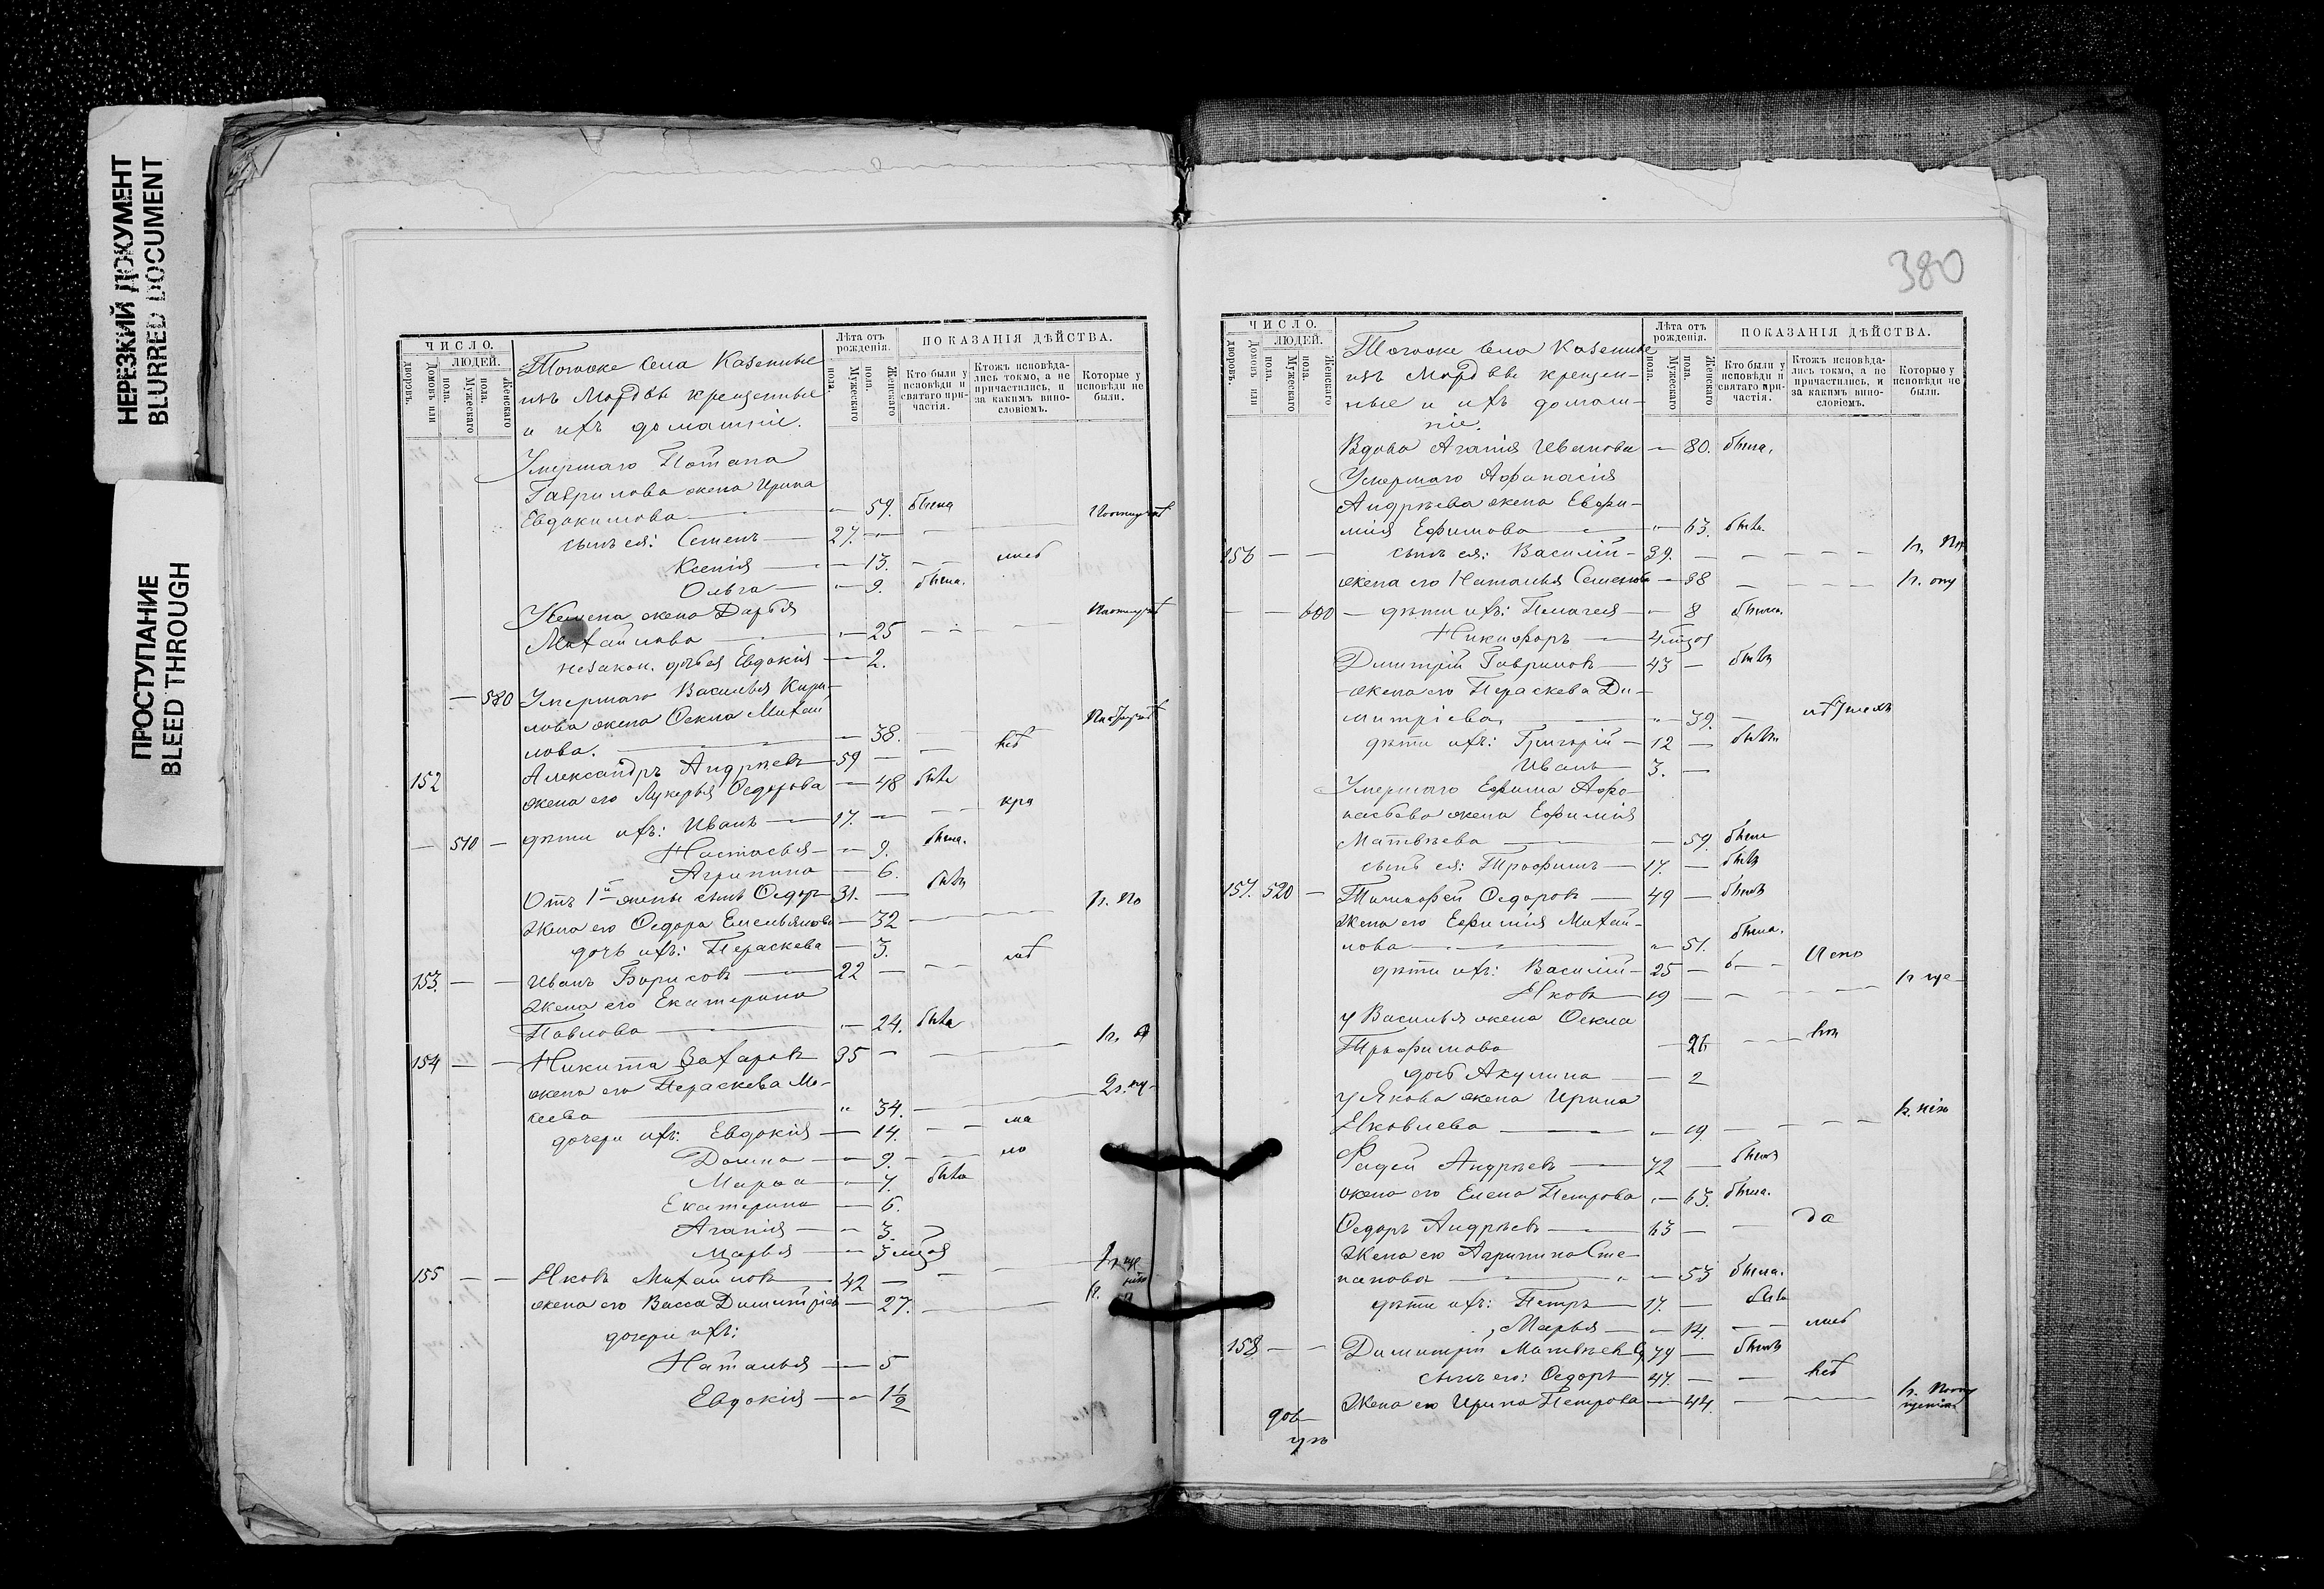 НЕРЕЗКИЙ ДОКУМЕНТ
BLURRED DOCUMENT
ПРОСТУПАНИЕ
BLEED THROUGH
ЧИСЛО.
Домовъ или дворовъ.
ЛЮДЕЙ.
Мужескаго пола.
Женскаго пола.
Тогоже села Казенные
изъ Мордвы крещенные
и ихъ домашніе.
Лѣта отъ рожденія.
Мужескаго пола.
Женскаго пола.
ПОКАЗАНІЯ ДѢЙСТВА.
Кто были у исповѣди и святаго причастія.
Ктожъ исповѣдались токмо, а не причастились, и за какимъ винословіемъ.
Которые у исповѣди не были.
Умершаго Потапа
Гаврилова жена Ирина
Евдокимова — 59. была
сынъ ея: Семенъ 27.
Ксенія — 13.
Ольга — 9. была.
Семена жена Дарья
Михайлова — 25
незакон. дочь ея Евдокія — 2.
— 580 Умершаго Василья Кири-
лова жена Ѳекла Михай
лова. — 38.
152 Александръ Андрѣевъ 59 —
жена его Лукерья Ѳедорова — 48
— 510 — дѣти ихъ: Иванъ 17. —
Настасья — 9. была.
Агрипина — 6.
Отъ 1й жены сынъ Ѳедоръ 31. —
Жена его Ѳедора Емельянова — 32
дочь ихъ: Пераскева — 3.
153. — — Иванъ Борисовъ 22 —
Жена его Екатерина
Павлова — 24.
154 — — Никита Захаровъ 35 —
жена его Пераскева Мо-
сеева " 34.
дочери ихъ: Евдокія — 14.
Домна — 9.
Марѳа — 7.
Екатерина — 6.
Агапія — 3.
Марья —
155 — — Яковъ Михайловъ 42 —
жена его Васса Димитріев — 27.
дочери ихъ:
Наталья — 5
Евдокія — 1½
380
ЧИСЛО.
Домовъ или дворовъ.
ЛЮДЕЙ.
Мужескаго пола.
Женскаго пола.
Тогоже села Казенные
изъ Мордвы крещен-
ные и ихъ домаш-
ніе.
Лѣта отъ рожденія.
Мужескаго пола.
Женскаго пола.
ПОКАЗАНІЯ ДѢЙСТВА.
Кто были у исповѣди и святаго причастія.
Ктожъ исповѣдались токмо, а не причастились, и за какимъ винословіемъ.
Которые у исповѣди не были.
Вдова Агапія Иванова — 80. была.
Умершаго Афанасія
Андрѣева жена Евфи-
мія Ефимова — 63.
156 — — сынъ ея: Василій — 39.
жена его Наталья Семенова — 38
— — 600 — дѣти ихъ: Пелагея — 8 была.
Никифоръ —
Димитрій Гавриловъ — 43 —
жена его Пераскева Ди-
митріева — 39.
дѣти ихъ: Григорій — 12 —
Иванъ 3. —
Умершаго Ефима Афа-
насьева жена Ефимія
Матвѣева — 59. была
сынъ ея: Трофимъ 17. —
157. 520 — Тимофей Ѳедоровъ 49 — былъ
Жена его Ефимія Михай-
лова — 51. была.
дѣти ихъ: Василій — 25 —
Яковъ 19 —
у Василья жена Ѳекла
Трофимова — 26
дочь Акулина — 2
у Якова жена Ирина
Яковлева — 19
Фадей Андрѣевъ 72 — былъ
жена его Елена Петрова — 63. была.
Ѳедоръ Андрѣевъ 63 —
Жена его Агрипина Сте-
панова — 53 была.
дѣти ихъ: Петръ 17. —
Марья — 14.
158. — — Димитрій Матвѣевъ 79 — былъ
сынъ его: Ѳедоръ 47. —
Жена его Ирина Петрова — 44.